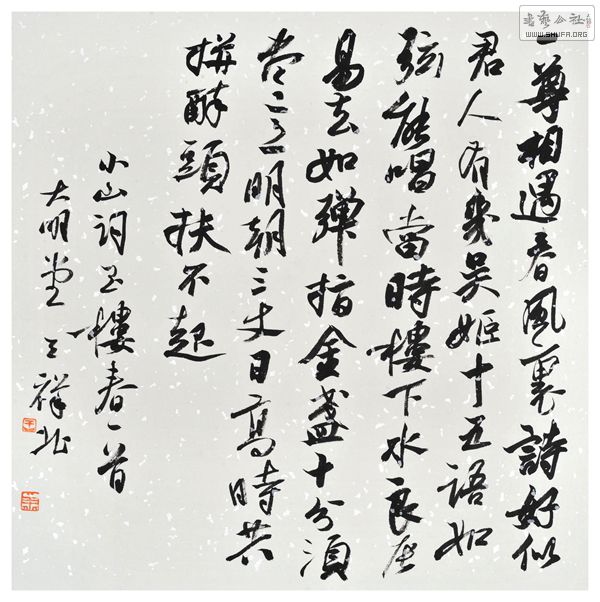 書藝公社
WWW.SHUFA.ORG
一尊相遇春風裏詩好似
君人有幾吳姬十五語如
弦能唱當時樓下水良辰
易去如彈指金盞十分須
尽意明朝三丈日高時共
拚醉頭扶不起
小山詞玉樓春一首
大明堂王祥北